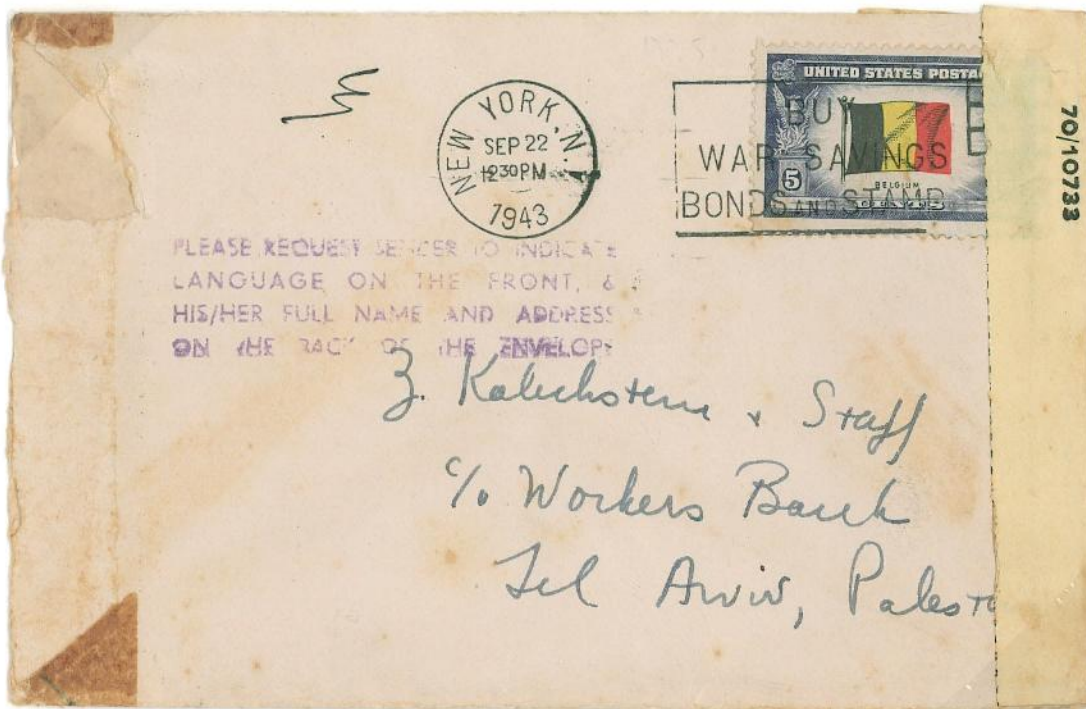 NEW YORK, N.Y.
SEP 22
12 30 PM
1943
UNITED STATES POSTA
BUY
WAR SAVINGS
BONDS AND STAMPS
5
BELGIUM
70/10733
PLEASE REQUEST SENDER TO INDICATE
LANGUAGE ON THE FRONT, &
HIS/HER FULL NAME AND ADDRESS
ON THE BACK OF THE ENVELOPE
Z. Kalichstein + Staff
c/o Workers Bank
Tel Aviv, Palest